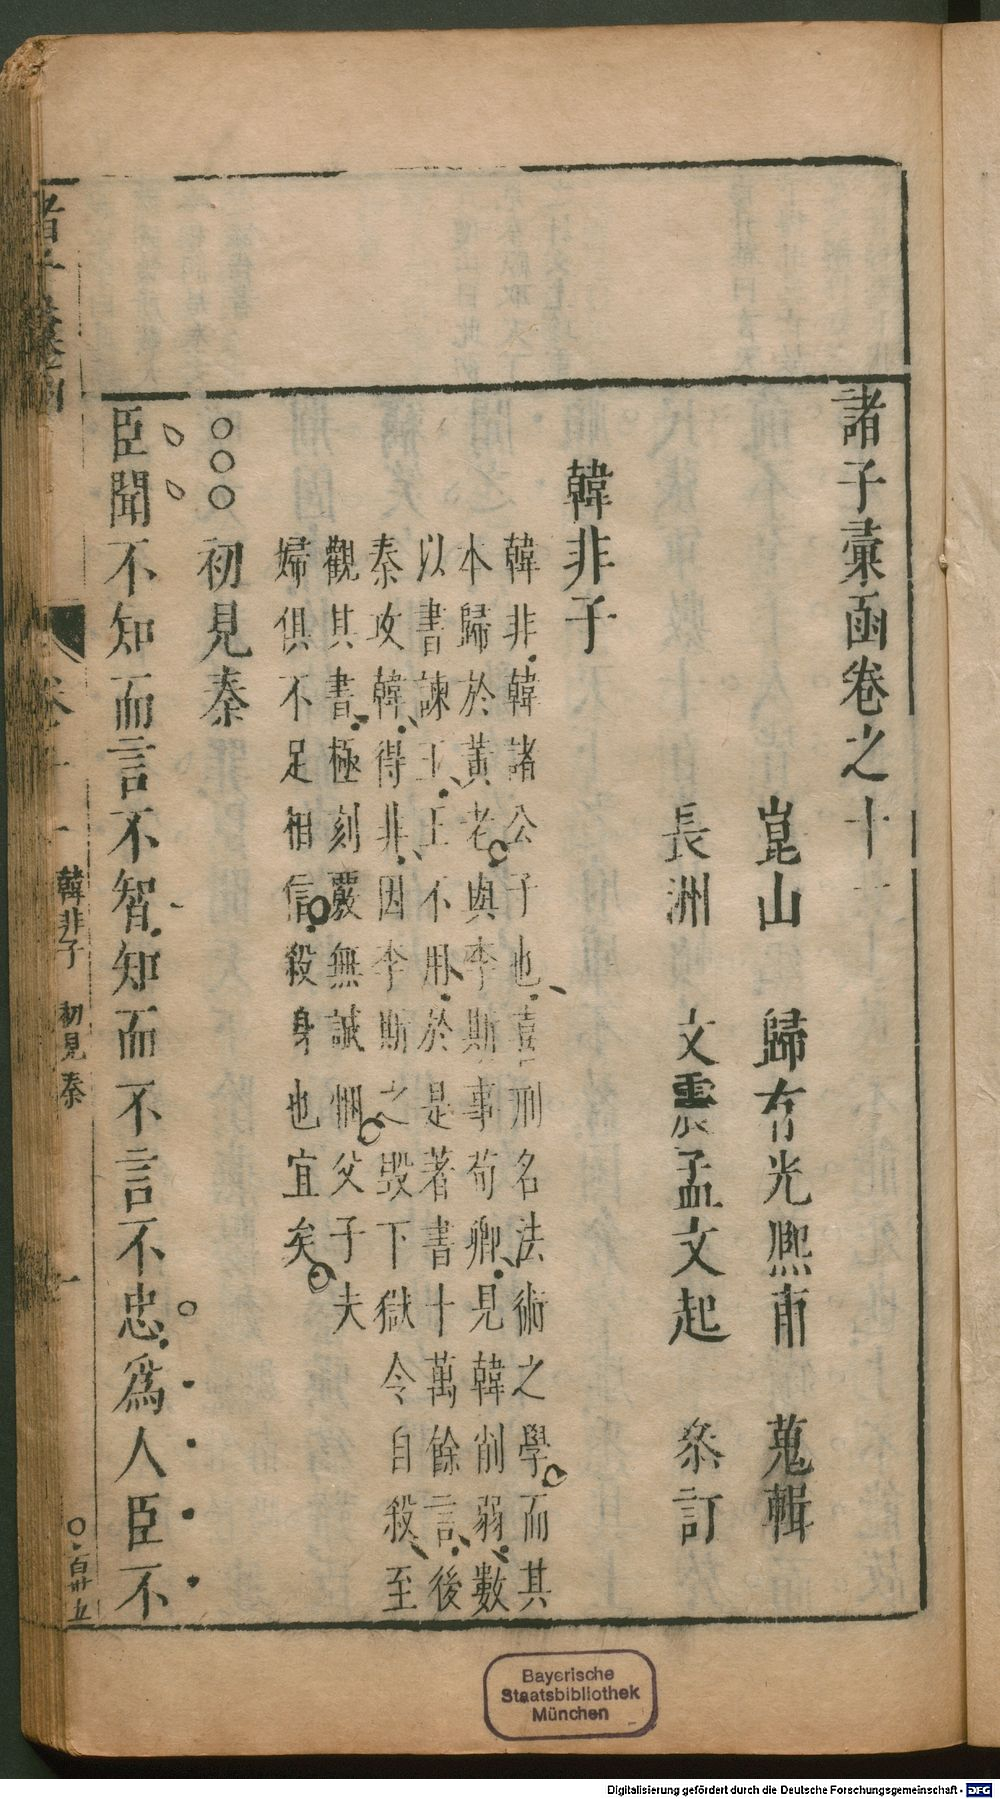 諸子彚函卷之十一
崑山 歸有光熈甫 蒐輯
長洲 文震孟文起 叅訂
韓非子
韓非韓諸公子也喜刑名法術之學而其
本歸於黃老與李斯事荀卿見韓削弱數
以書諫王王不用於是著書十萬餘言後
秦攻韓得非因李斯之毀下獄令自殺至
觀其書極刻覈無誠悃父子夫
婦俱不足相信殺身也宜矣
○○○初見秦
臣聞不知而言不智知而不言不忠爲人臣不
諸子彚函
卷十一
韓非子 初見秦
一
○百卅五
Bayerische
Staatsbibliothek
München
Digitalisierung gefördert durch die Deutsche Forschungsgemeinschaft - DFG